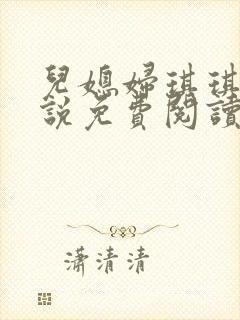 兒媳婦琪琪
說免費閱讀
瀟清清